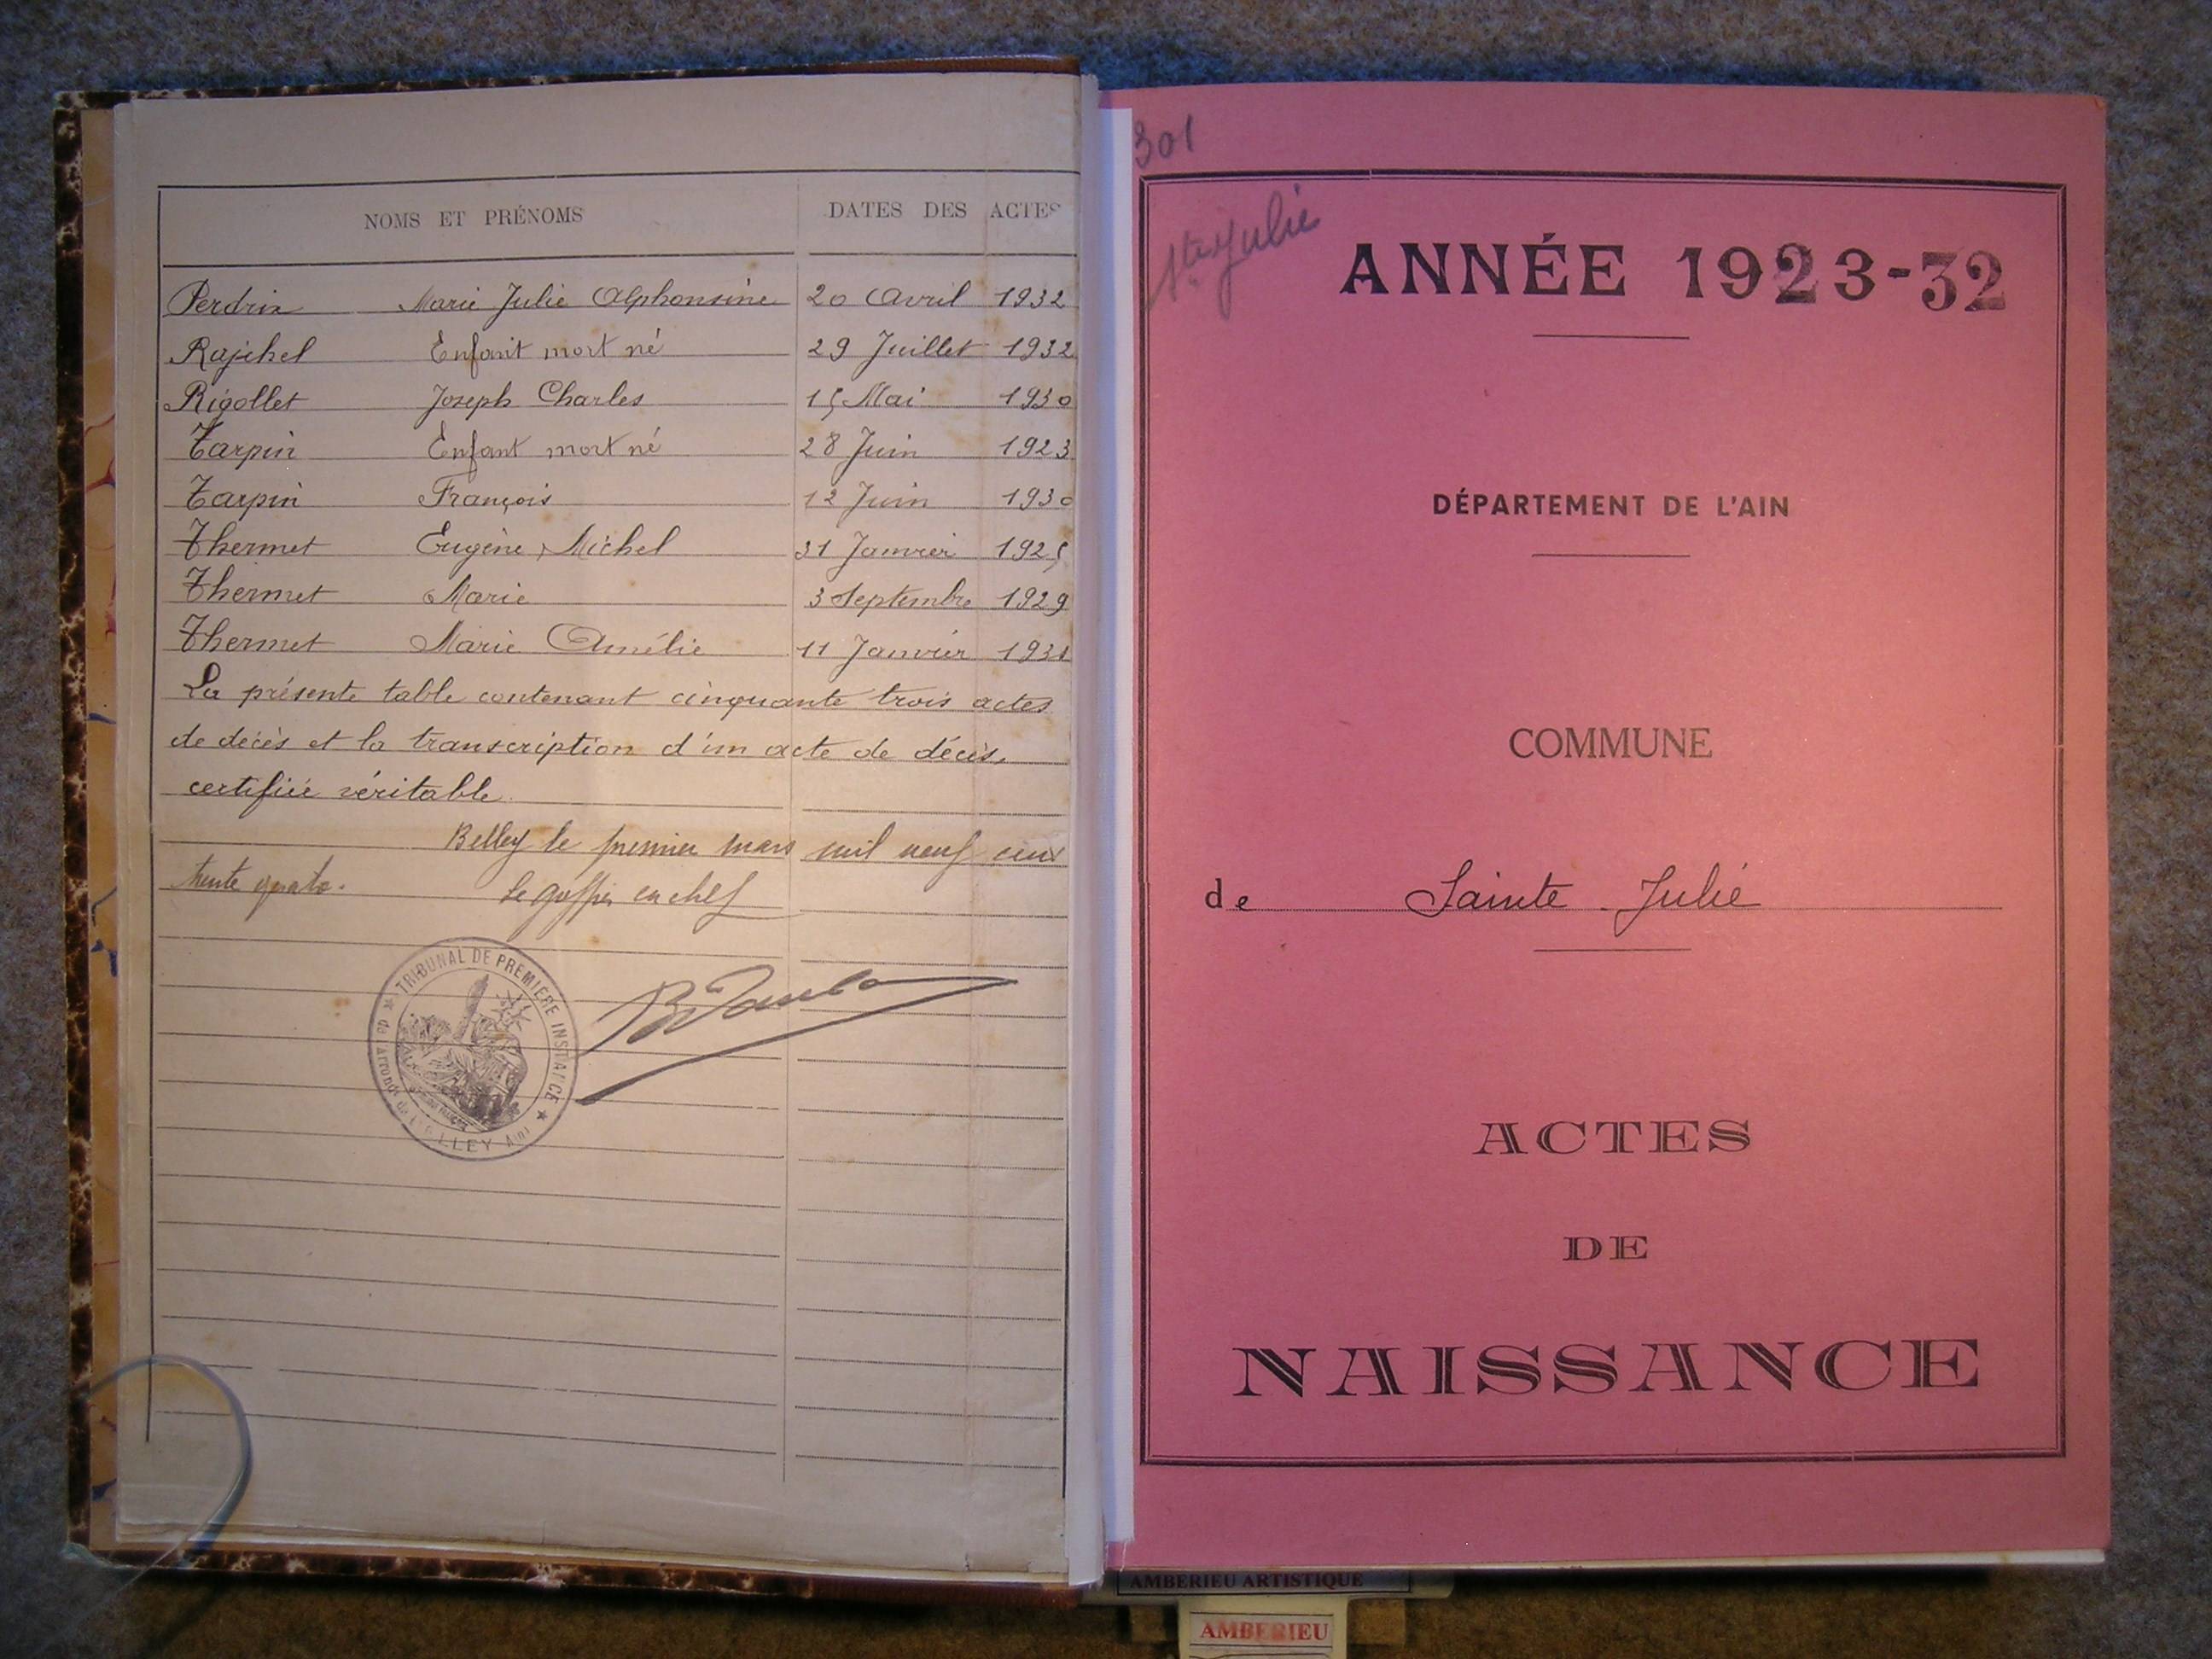 NOMS ET PRÉNOMS DATES DES ACTES
Perdrix Marie Julie Alphonsine 20 Avril 1932
Rajihel Enfant mort né 29 Juillet 1932
Rigollet Joseph Charles 15 Mai 1930
Tarpin Enfant mort né 28 Juin 1923
Tarpin François 12 Juin 1930
Thermet Eugène, Michel 31 Janvier 1925
Thermet Marie 3 Septembre 1929
Thermet Marie Amélie 11 Janvier 1931
La présente table contenant cinquante trois actes
de décès et la transcription d'un acte de décès,
certifiée véritable.
Belley le premier mars mil neuf cent
trente quatre.
Le greffier en chef
TRIBUNAL DE PREMIÈRE INSTANCE
BELLEY Ain
301
Ste Julie
ANNÉE 1923-32
DÉPARTEMENT DE L'AIN
COMMUNE
de Sainte Julie
ACTES
DE
NAISSANCE
AMBERIEU ARTISTIQUE
AMBERIEU